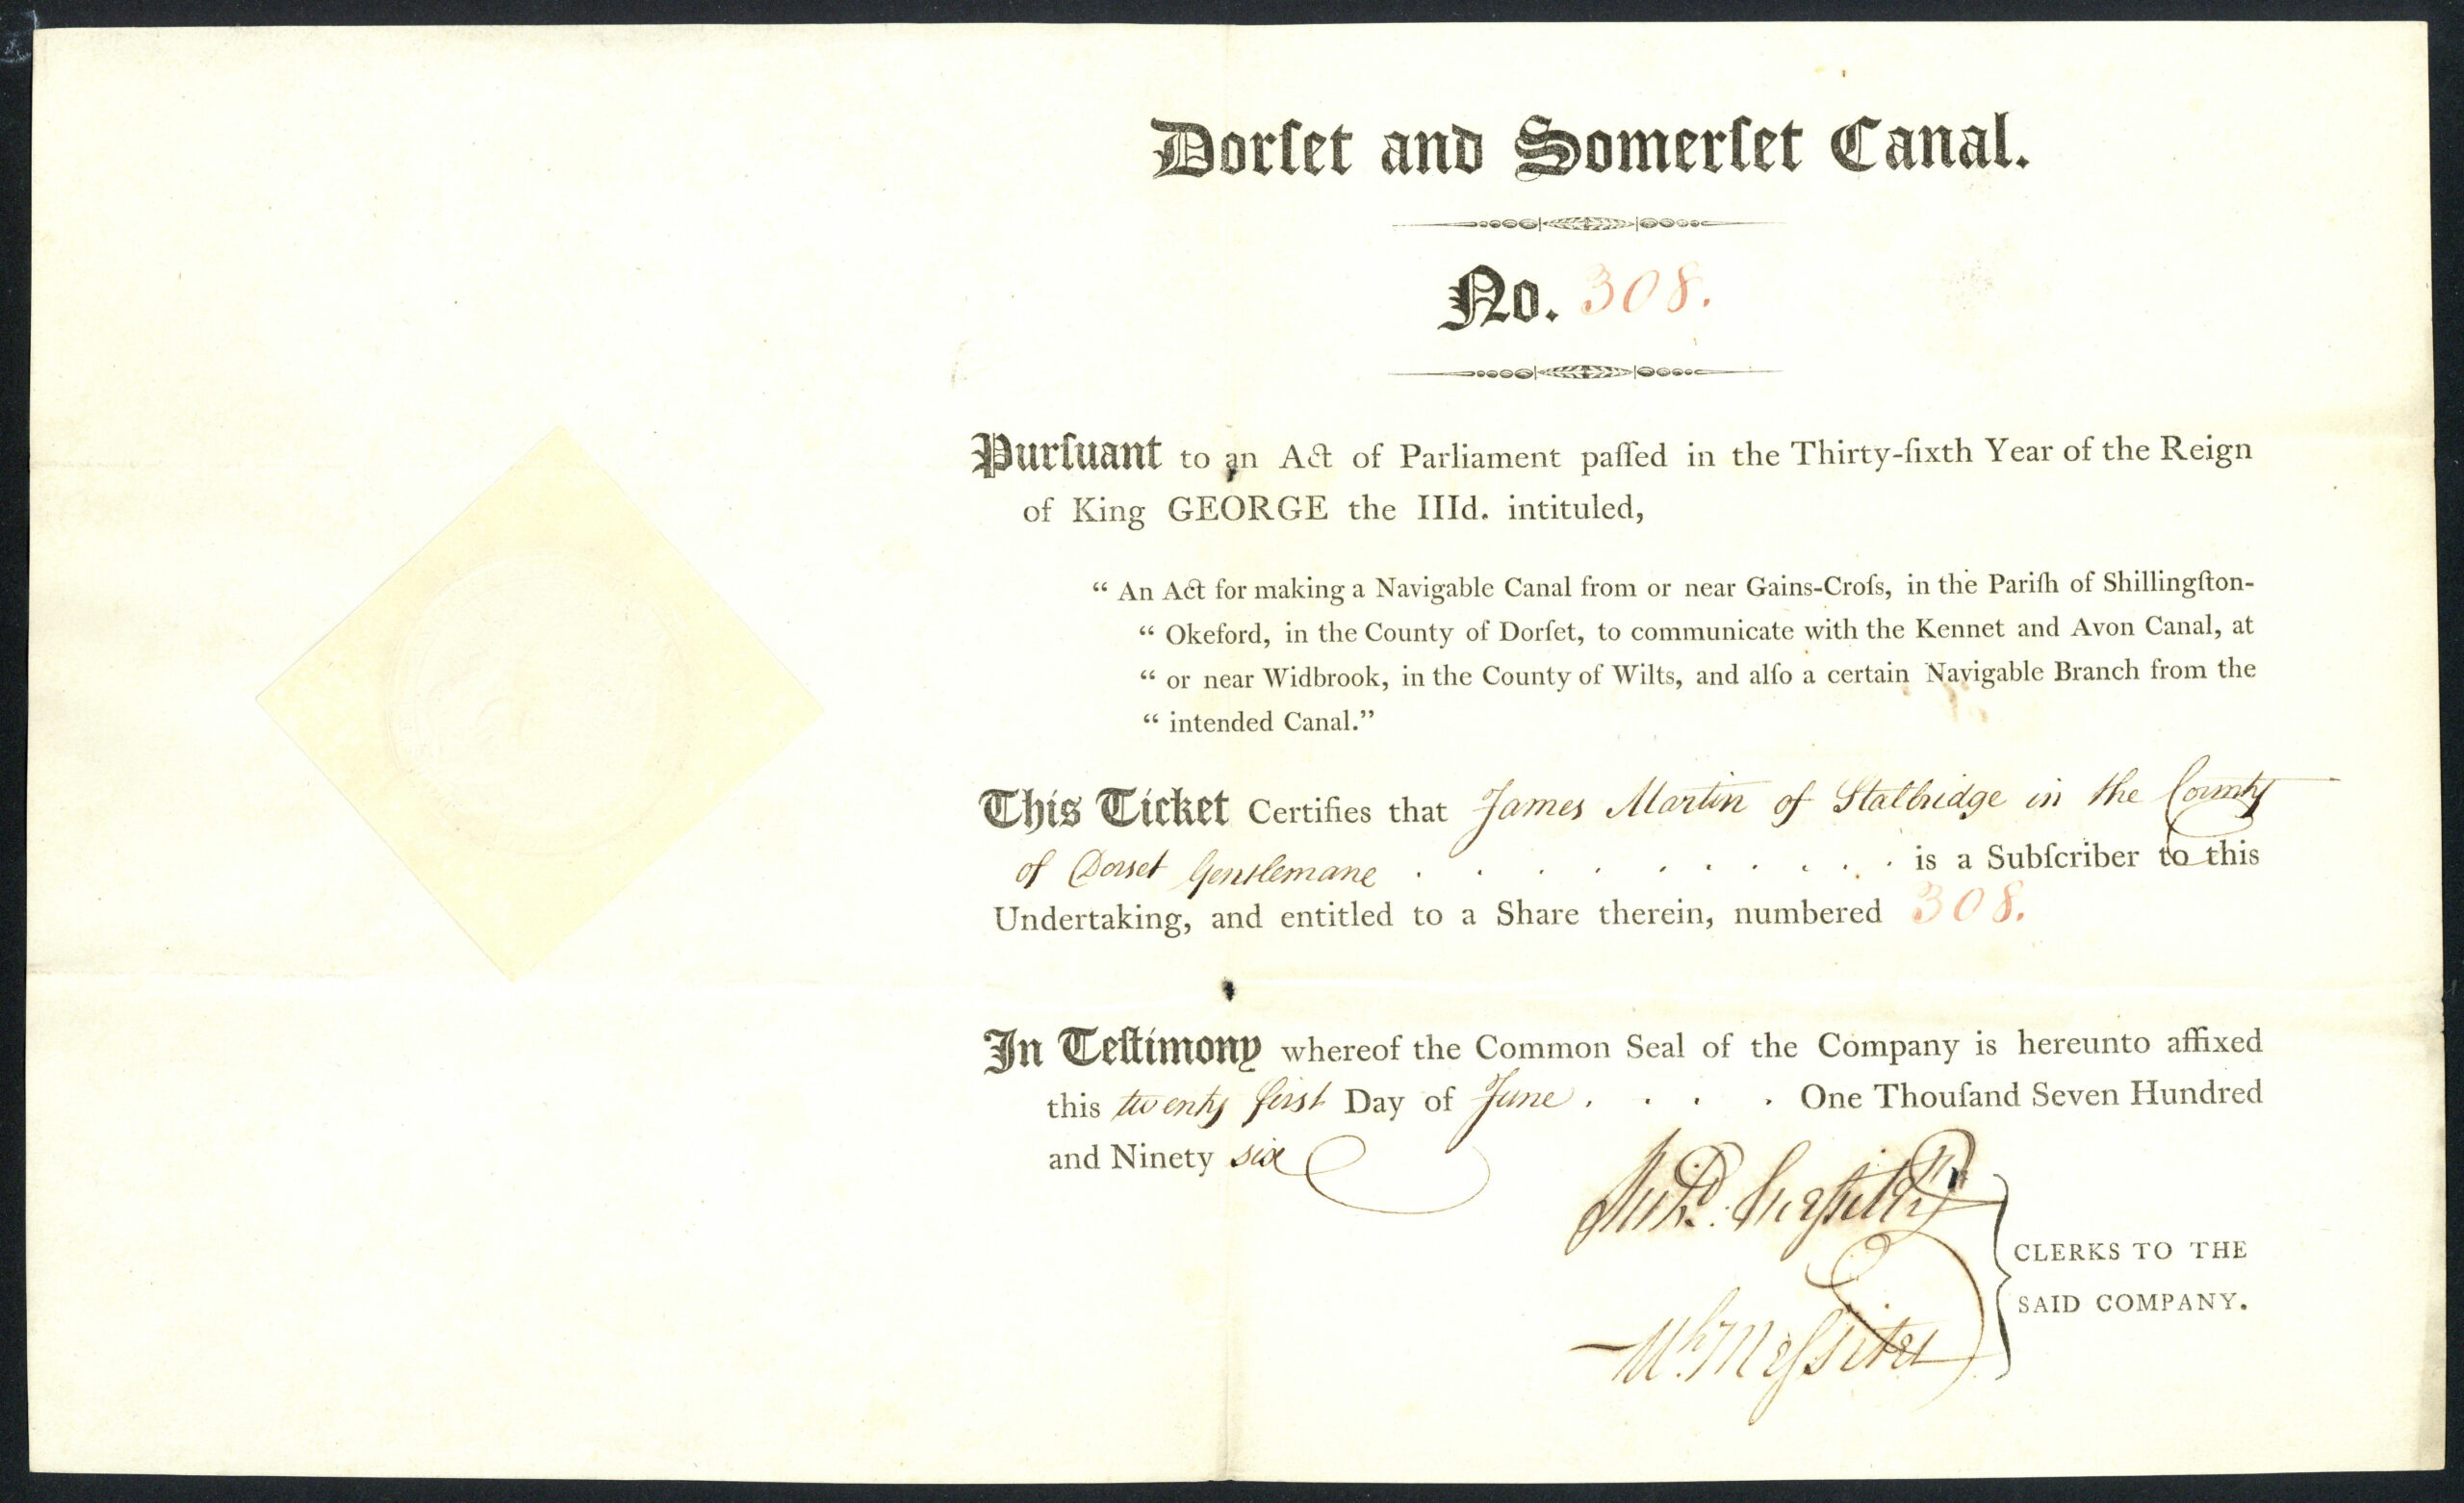 Dorſet and Somerſet Canal.
No. 308.
Purſuant to an Act of Parliament paſſed in the Thirty-ſixth Year of the Reign
of King GEORGE the IIId. intituled,
“ An Act for making a Navigable Canal from or near Gains-Croſs, in the Pariſh of Shillingſton-
“ Okeford, in the County of Dorſet, to communicate with the Kennet and Avon Canal, at
“ or near Widbrook, in the County of Wilts, and alſo a certain Navigable Branch from the
“ intended Canal.”
This Ticket Certifies that James Martin of Stalbridge in the County
of Dorset Gentlemane . . . . . . . . . . is a Subſcriber to this
Undertaking, and entitled to a Share therein, numbered 308.
In Teſtimony whereof the Common Seal of the Company is hereunto affixed
this twenty first Day of June . . . . One Thouſand Seven Hundred
and Ninety six
CLERKS TO THE
SAID COMPANY.
Wm. Meſsiter